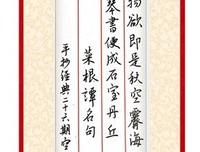 物欲即是秋空霽海
琴書便成石室丹丘
菜根譚名句
手抄经典二十六期空